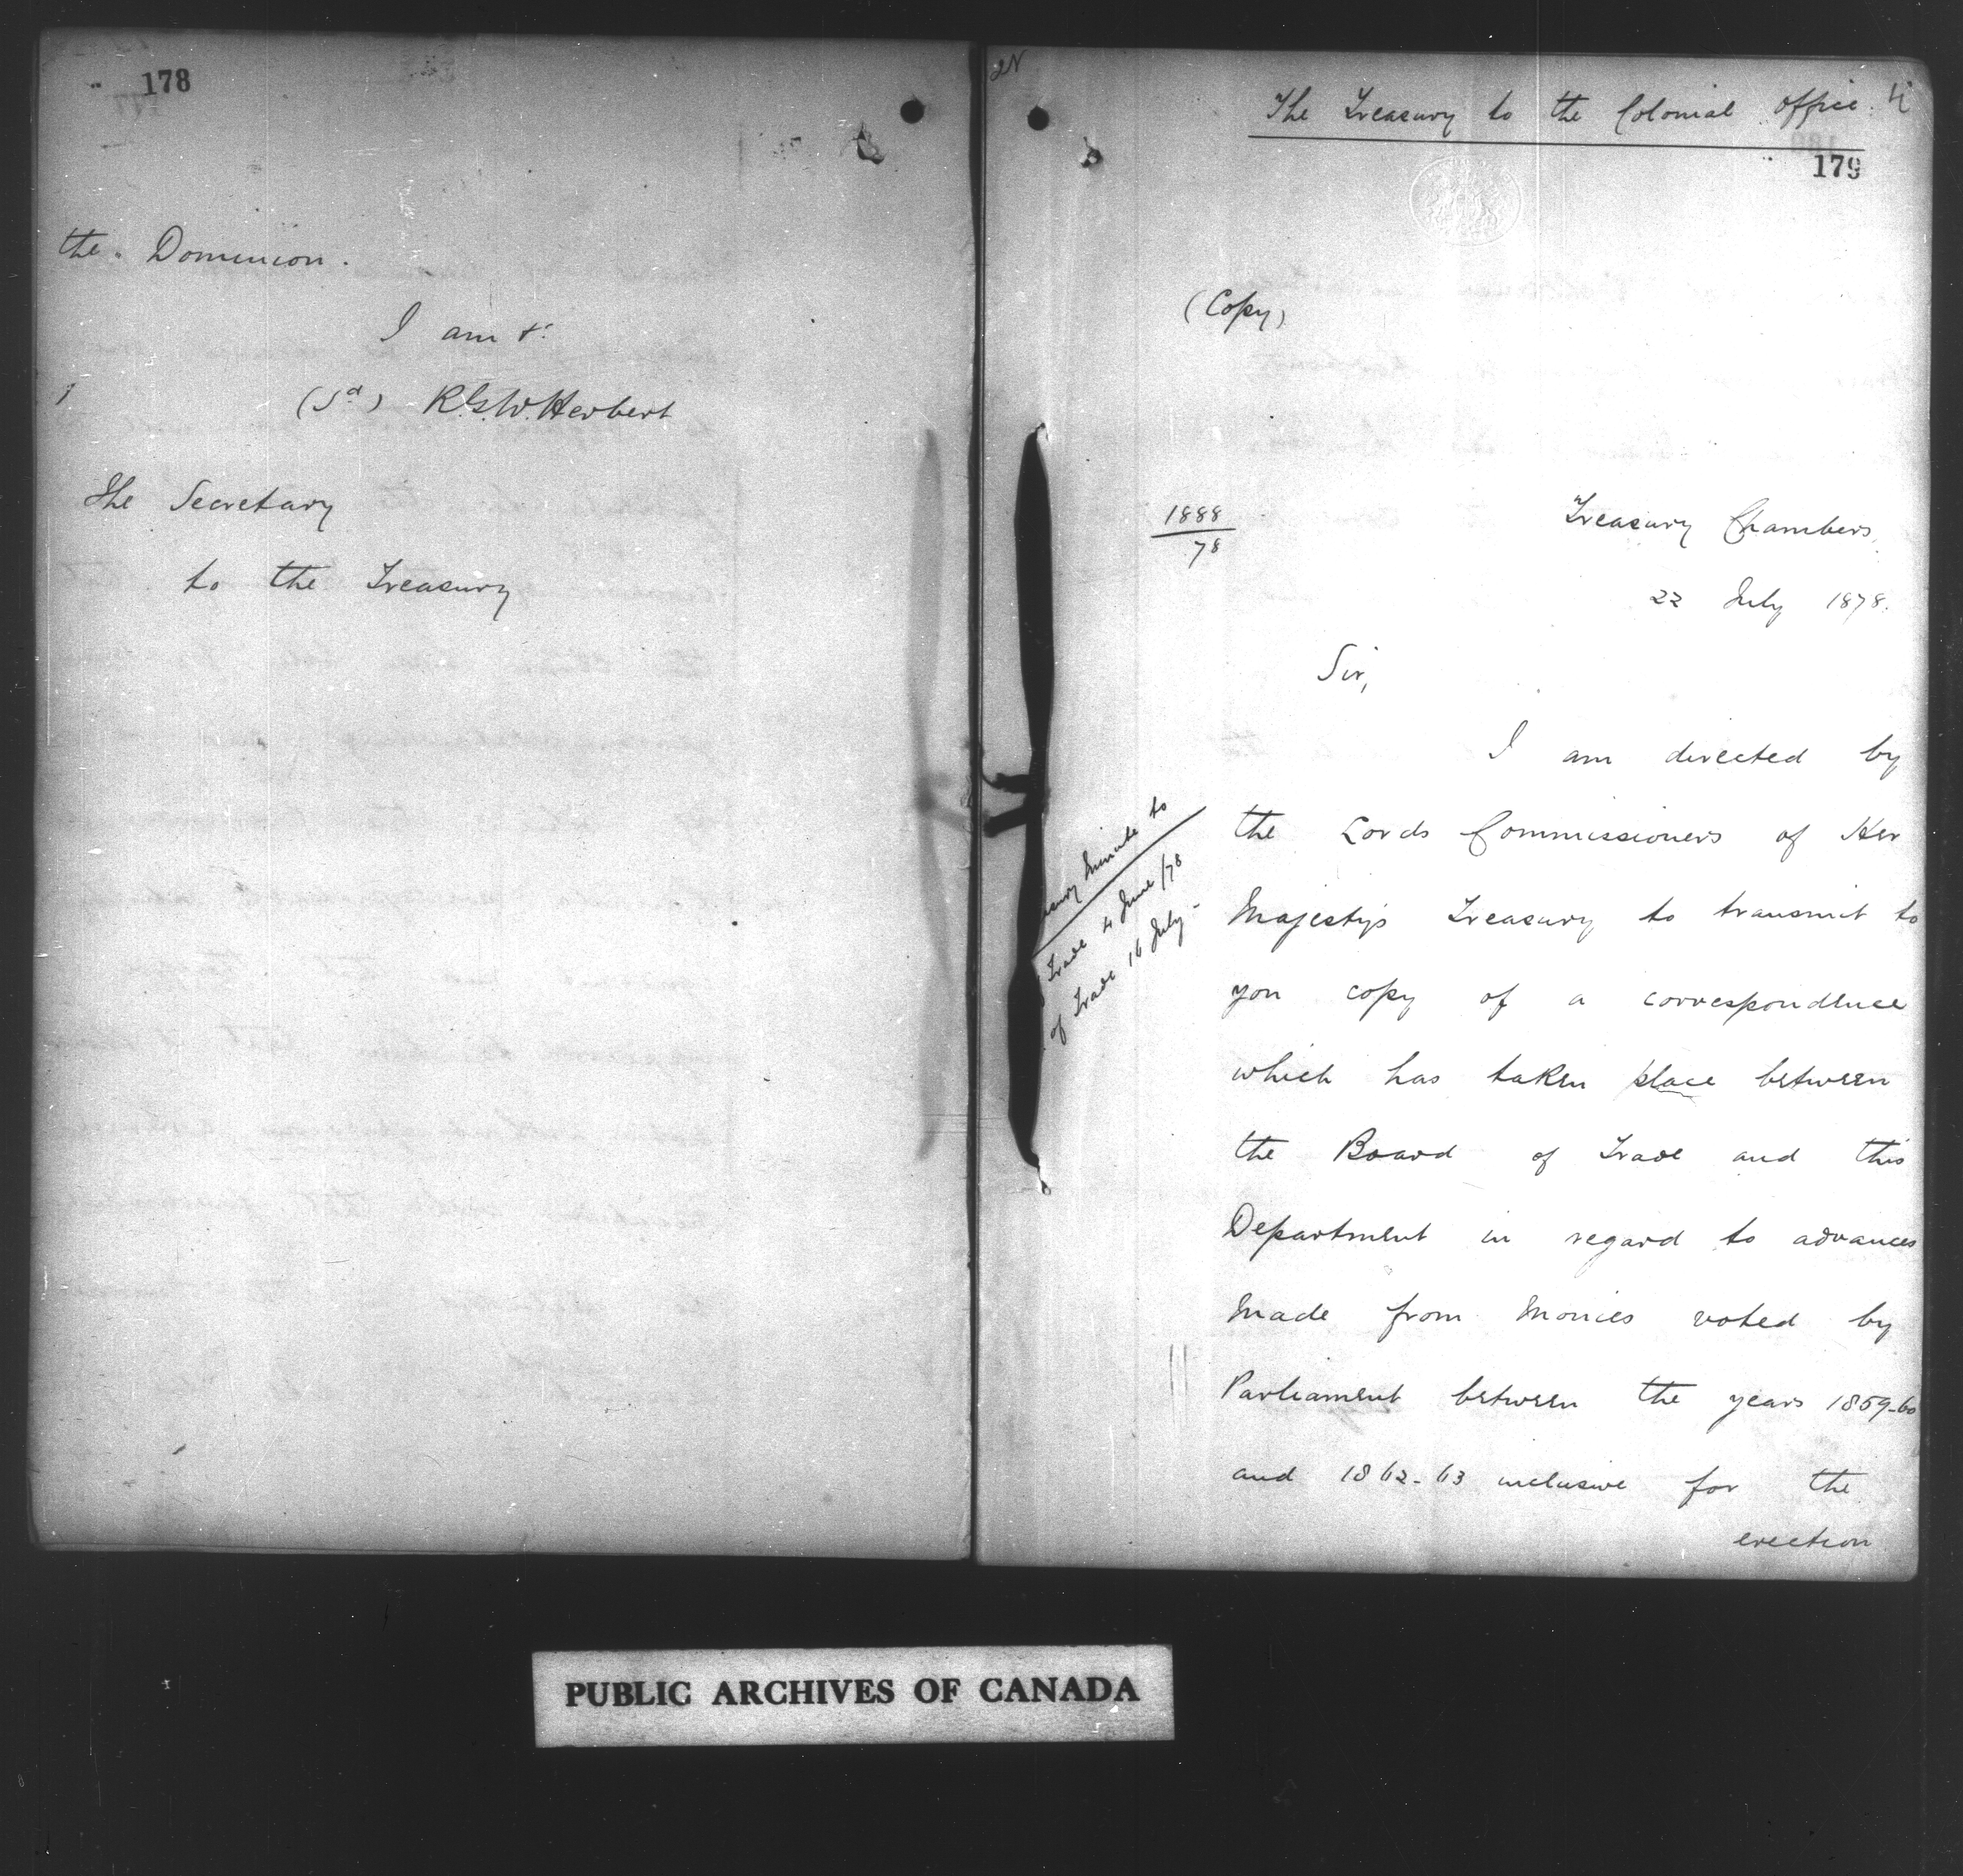 178
the Dominion.
I am &c
(Sd) R.G.W. Herbert
The Secretary
to the Treasury
The Treasury to the Colonial Office. 4
179
(Copy)
1888
78
Treasury Chambers,
22 July 1878.
Sir,
I am directed by
the Lords Commissioners of Her
Majesty's Treasury to transmit to
you copy of a correspondence
which has taken place between
the Board of Trade and this
Department in regard to advances
made from Monies voted by
Parliament between the years 1859-60
and 1862-63 inclusive for the
erection
Minute to
Trade 4 June /78
of Trade 16 July -
PUBLIC ARCHIVES OF CANADA